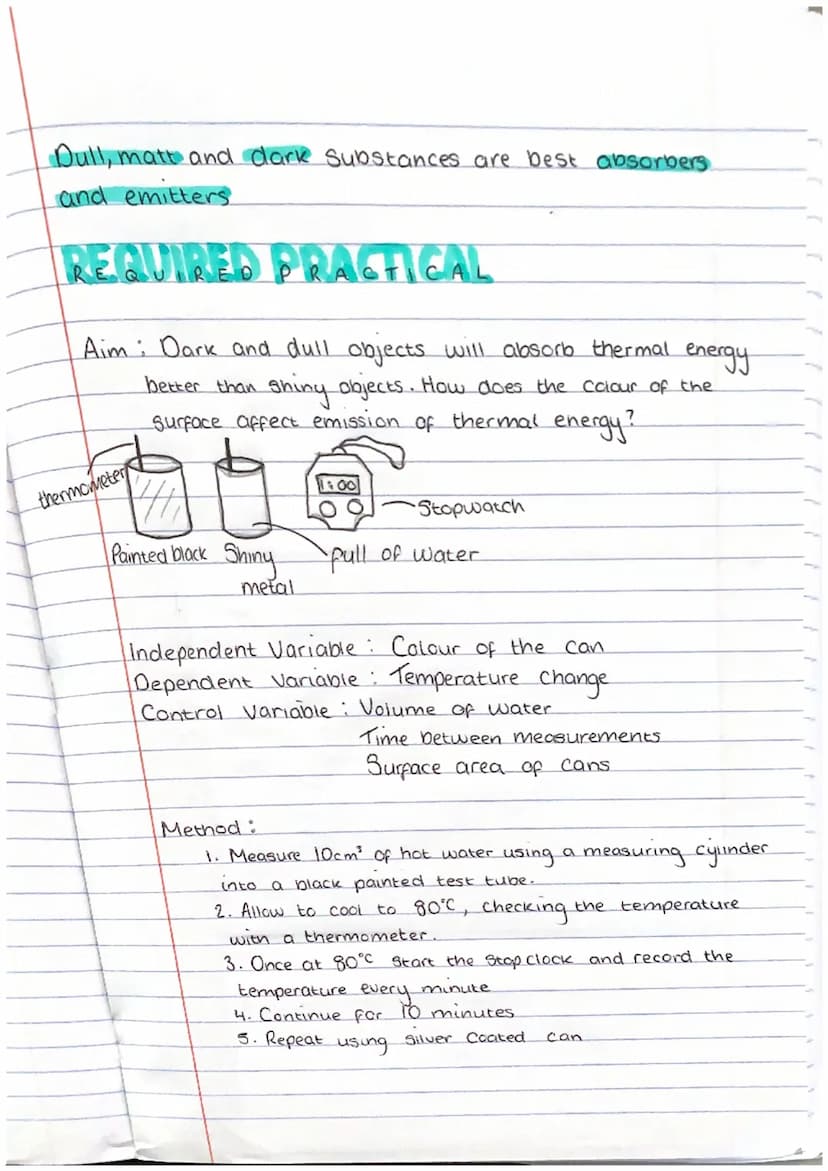 Dull, matt and dark substances are best absorbers
and emitters
REQUIRED PRACTICAL
REQUIRED PRACTICAL
Aim : Dark and dull objects will absorb thermal energy
better than shiny objects. How does the colour of the
surface affect emission of thermal energy?
thermometer
1:00
Stopwatch
Painted black Shiny
metal
full of water
Independent Variable : Colour of the can
Dependent Variable : Temperature change
Control Variable : Volume of water
Time between measurements
Surface area of cans
Method :
1. Measure 10cm³ of hot water using a measuring cylinder
into a black painted test tube.
2. Allow to cool to 80°C, checking the temperature
with a thermometer.
3. Once at 80°C start the stop clock and record the
temperature every minute
4. Continue for 10 minutes
5. Repeat using silver coated can